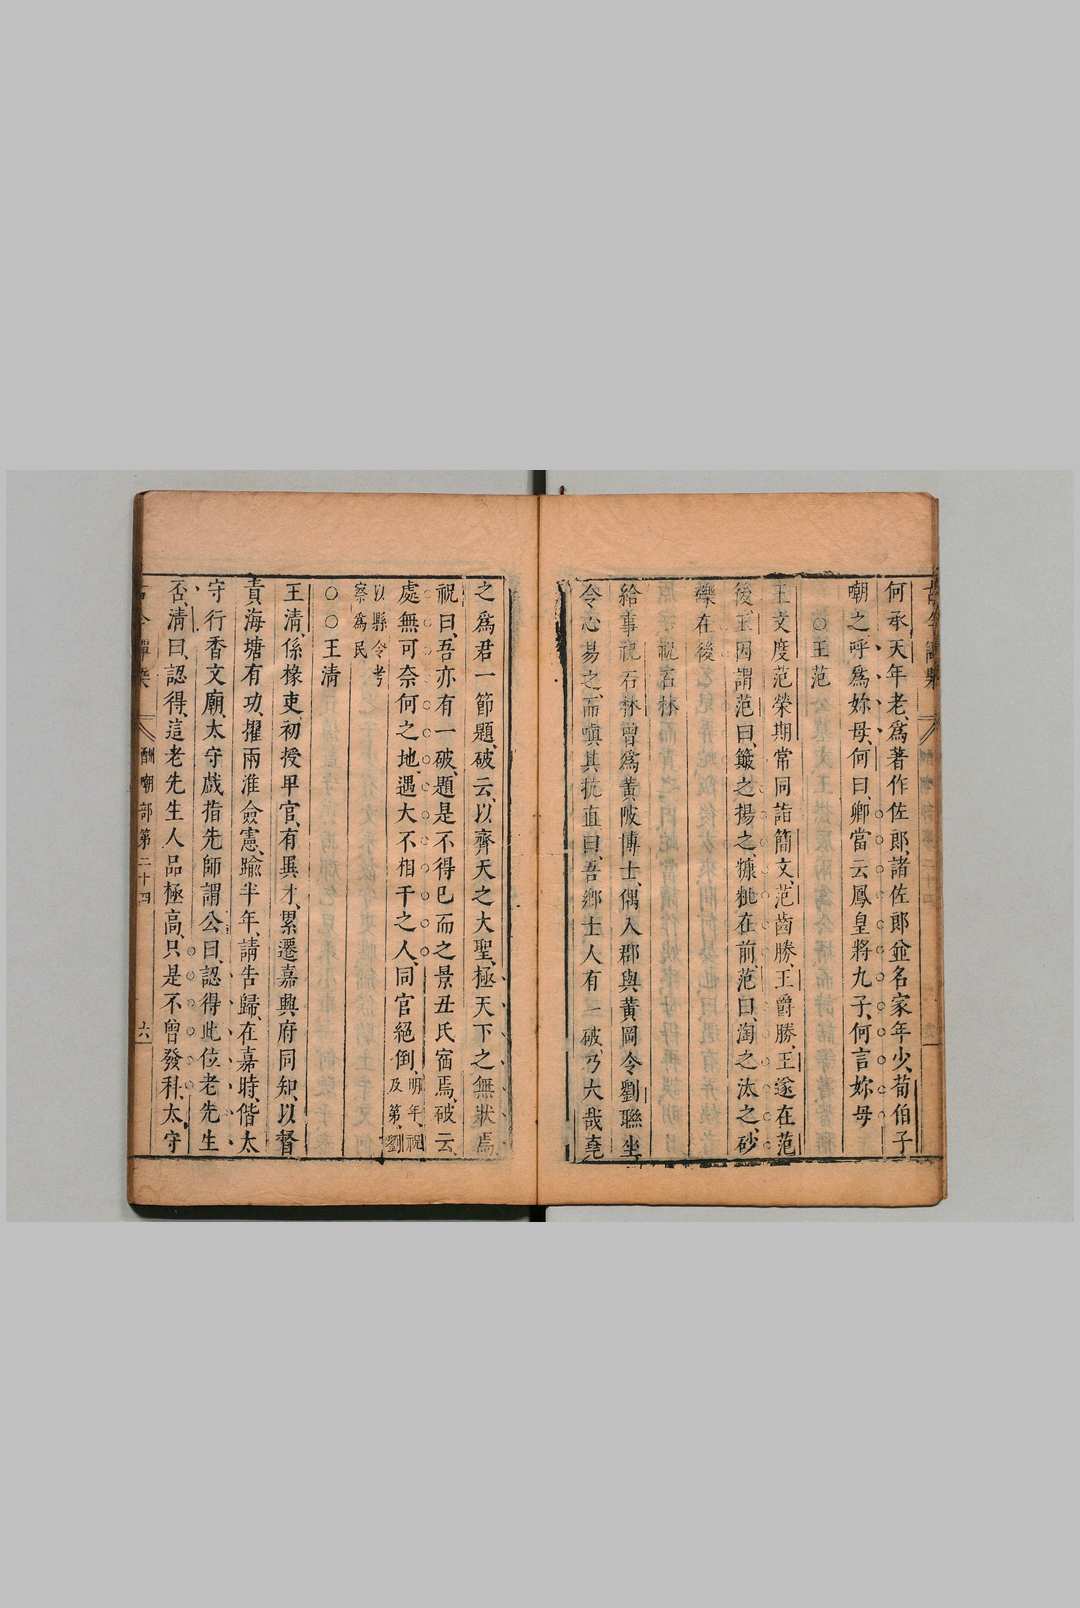 何承天年老、爲著作佐郎、諸佐郎並名家年少、荀伯子
嘲之、呼爲妳母、何曰、卿當云鳳皇將九子、何言妳母
○王范
王文度范榮期常同詣簡文、范齒勝、王爵勝、王遂在范
後、王因謂范曰、簸之揚之、糠粃在前、范曰、淘之汰之、砂
礫在後
祝石林
給事祝石林曾爲黃陂博士、偶入郡與黃岡令劉聯坐、
令心易之、而嗔其抗直曰、吾鄉士人有一破、乃大哉堯
之爲君一節題、破云、以齊天之大聖、極天下之無狀焉、
祝曰、吾亦有一破、題是不得已而之景丑氏宿焉、破云、
處無可奈何之地、遇大不相干之人、同官絕倒、明年、祝
及第、劉
以縣令考
察爲民
○○王清
王清、係椽吏、初授甲官、有異才、累遷嘉興府同知、以督
責海塘有功、擢兩淮僉憲、踰半年、請告歸、在嘉時、偕太
守行香文廟、太守戲指先師謂公曰、認得此位老先生
否、清曰、認得、這老先生人品極高、只是不曾發科、太守
古今譚槩
酬嘲部第二十四
六